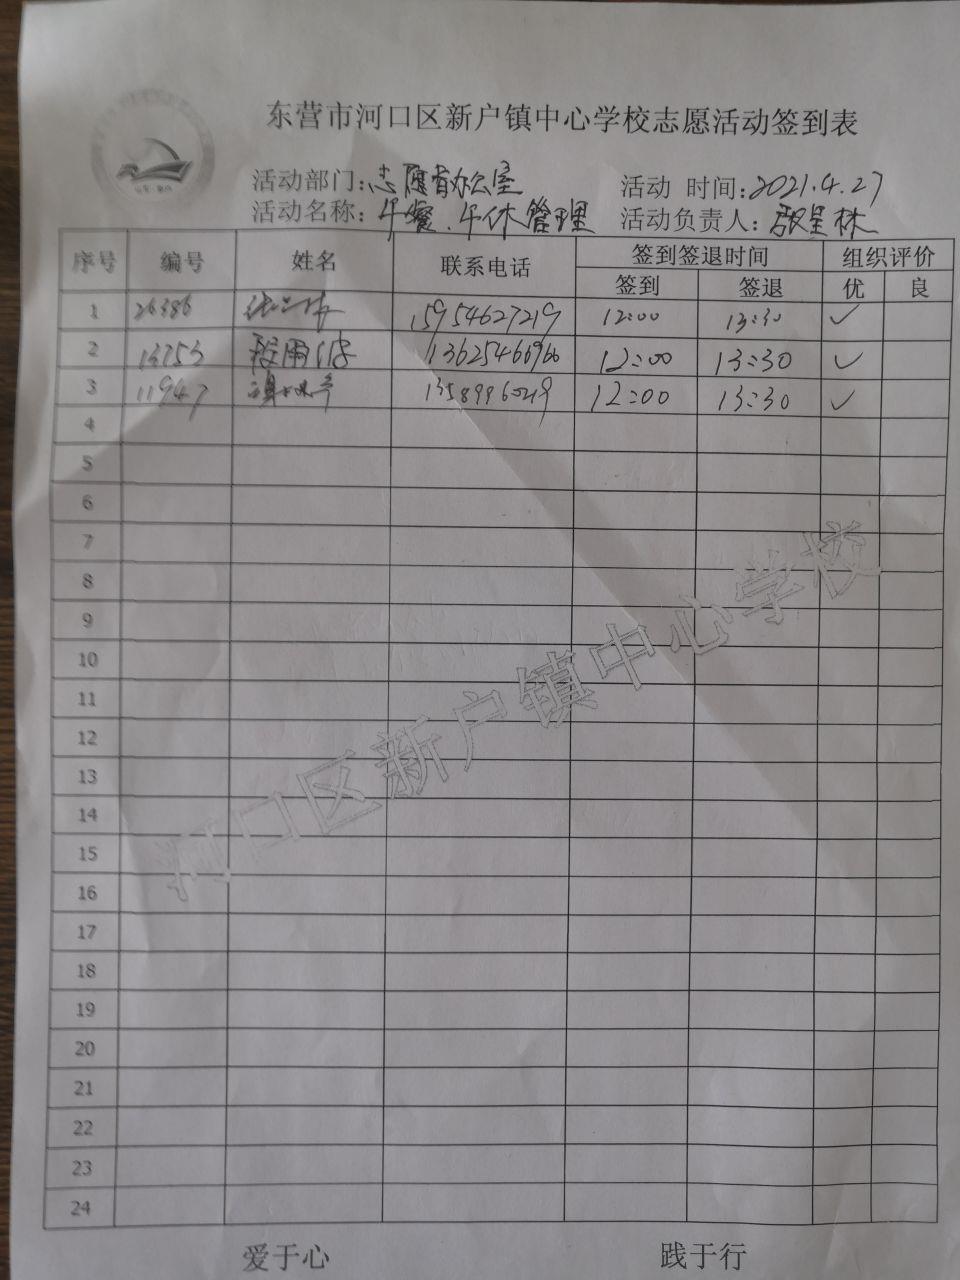 东营市河口区新户镇中心学校志愿活动签到表
活动部门:志愿者办公室 活动 时间:2021.4.27
活动名称:午餐、午休管理 活动负责人:
序号 编号 姓名 联系电话 签到签退时间 组织评价
签到 签退 优 良
1 26386 15954627219 12:00 13:30 ✓
2 13753 13625466960 12:00 13:30 ✓
3 11947 12:00 13:30 ✓
4
5
6
7
8
9
10
11
12
13
14
15
16
17
18
19
20
21
22
23
24
河口区新户镇中心学校
爱于心 践于行